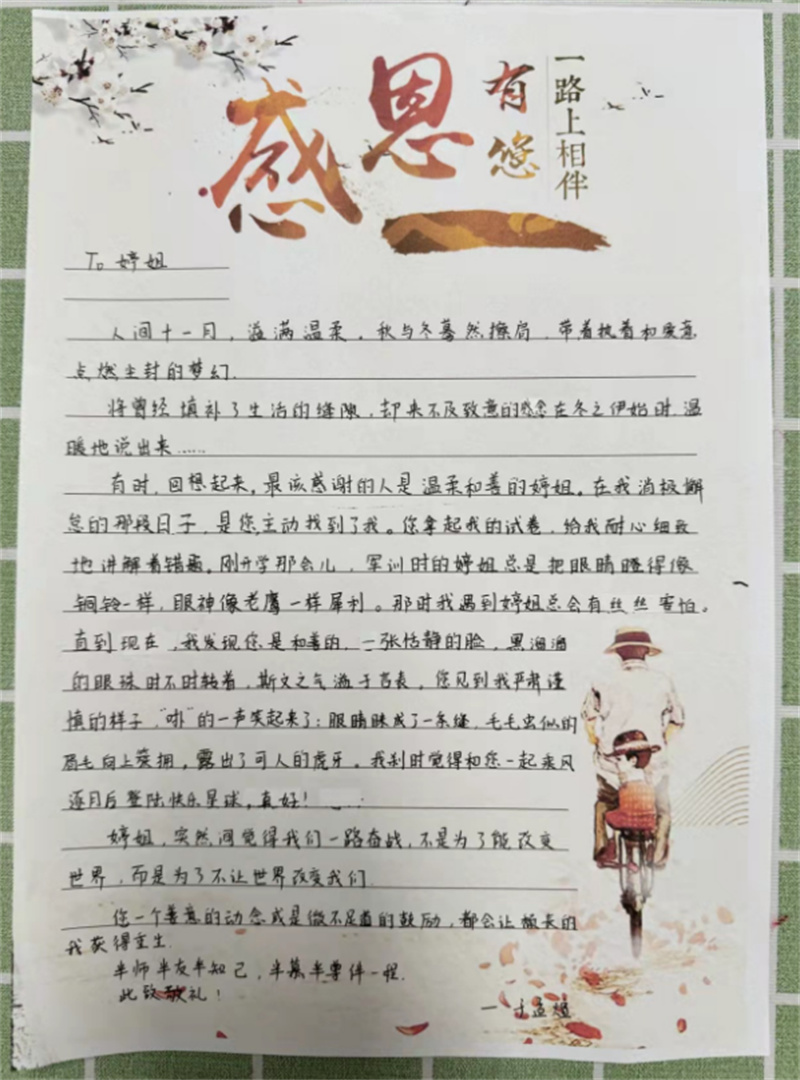 感恩有您
一路上相伴
To 婷姐
人间十一月，溢满温柔。秋与冬蓦然擦肩，带着执着和爱意
点燃尘封的梦幻.
将曾经填补了生活的缝隙，却来不及致意的感念在冬之伊始时，温
暖地说出来……
有时，回想起来，最该感谢的人是温柔和善的婷姐。在我消极懈
怠的那段日子，是您主动找到了我。您拿起我的试卷，给我耐心细致
地讲解着错题。刚开学那会儿，军训时的婷姐总是把眼睛瞪得像
铜铃一样，眼神像老鹰一样犀利。那时我遇到婷姐总会有丝丝害怕。
直到现在，我发现您是和善的，一张恬静的脸，黑溜溜
的眼珠时不时转着，斯文之气溢于言表。您见到我严肃谨
慎的样子，“咔”的一声笑起来了：眼睛眯成了一条缝，毛毛虫似的
眉毛向上簇拥，露出了可人的虎牙。我刹时觉得和您一起乘风
逐月后登陆快乐星球，真好！
婷姐，突然间觉得我们一路奋战，不是为了能改变
世界，而是为了不让世界改变我们.
您一个善意的动念或是微不足道的鼓励，都会让成长的
我获得重生.
半师半友半知己，半慕半尊伴一程.
此致敬礼！